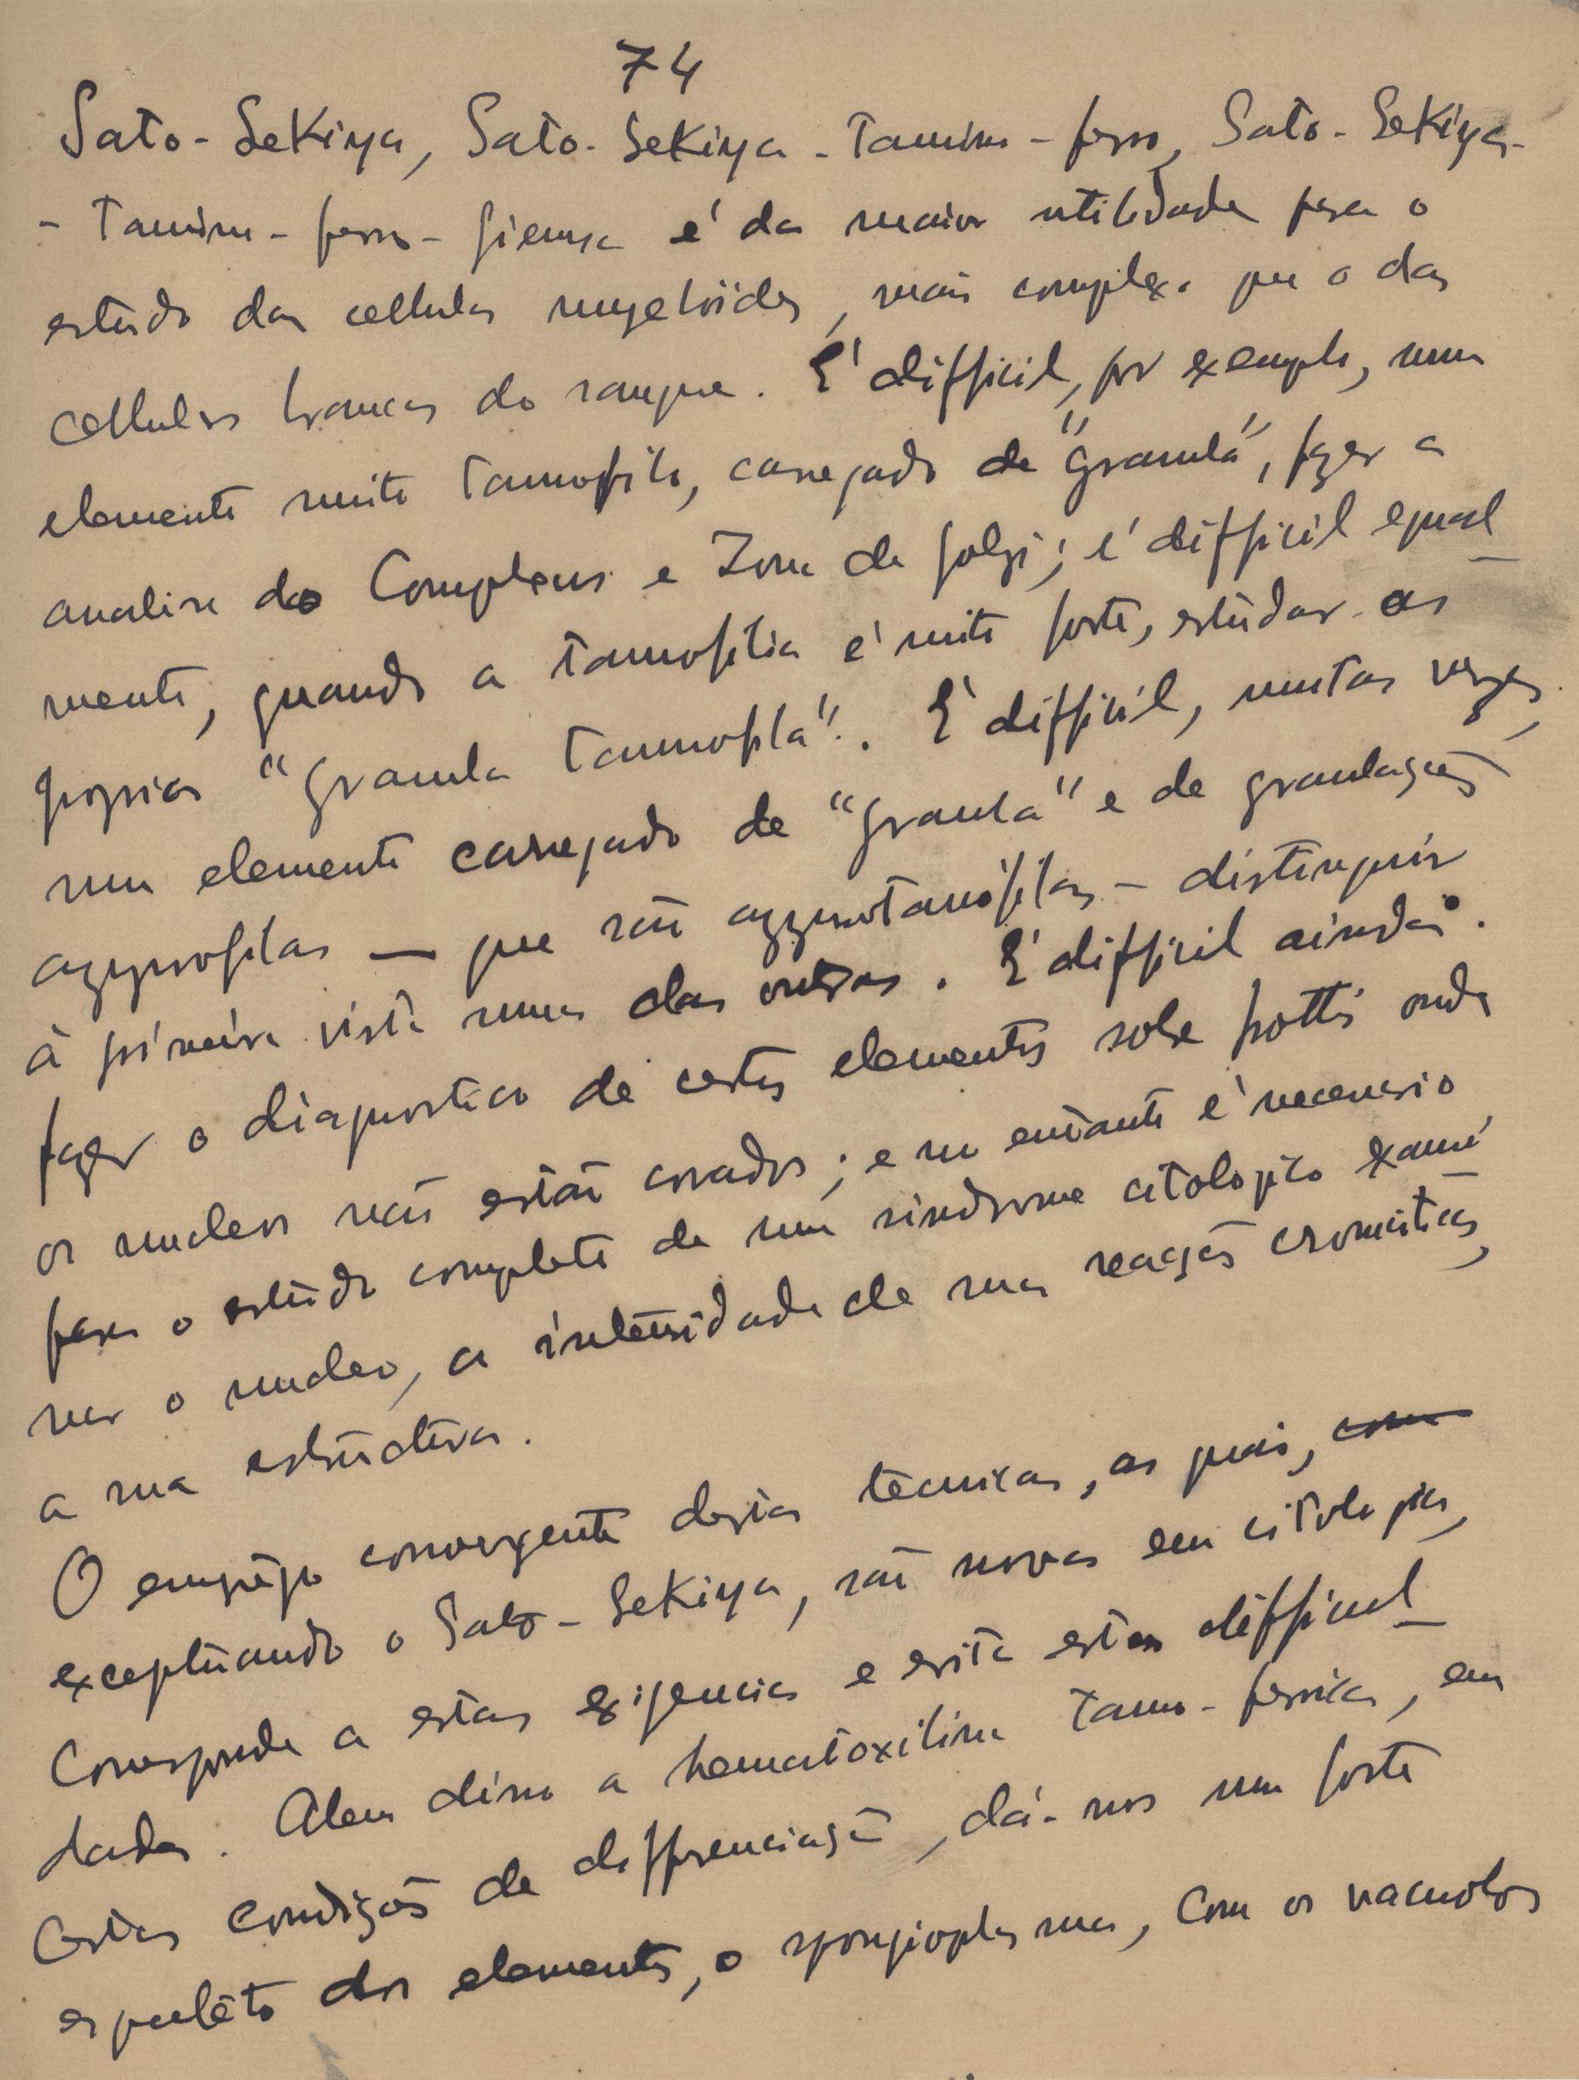 74
Sato-Sekiya, Sato-Sekiya-Tanino-ferro, Sato-Sekiya-
- Tanino-ferro-Giemsa é da maior utilidade para o
estudo das cellulas myeloïdes, mais complexo que o das
cellulas brancas do sangue. É difficil, por exemplo, num
elemento muito tannofilo, carregado de "granula", fazer a
analise do Complexus e Zona de Golgi; é difficil egual_
mente, quando a tannofilia é muito forte, estudar os
proprios "granula tannofila". É difficil, muitas vezes,
num elemento carregado de "granula" e de granulações
azurofilas — que são azurotanófilas - distinguir
à primeira vista umas das outras. É difficil ainda
fazer o diagnostico de certos elementos sobre frottis onde
os nucleos não estão corados; e no entanto é necessario
para o estudo completo de um sindrome citologico exami_
nar o nucleo, a intensidade de sua reacção cromatica,
a sua estructura.
O emprêgo convergente destas tecnicas, as quais,
exceptuando o Sato-Sekiya, são novas em citologia,
corresponde a estas exigencias e evita estas difficul_
dades. Alem disso a hematoxilina tano-ferrica, em
certas condições de differenciação, dá-nos um forte
esqueleto dos elementos, o spongioplasma, com os vacuolos